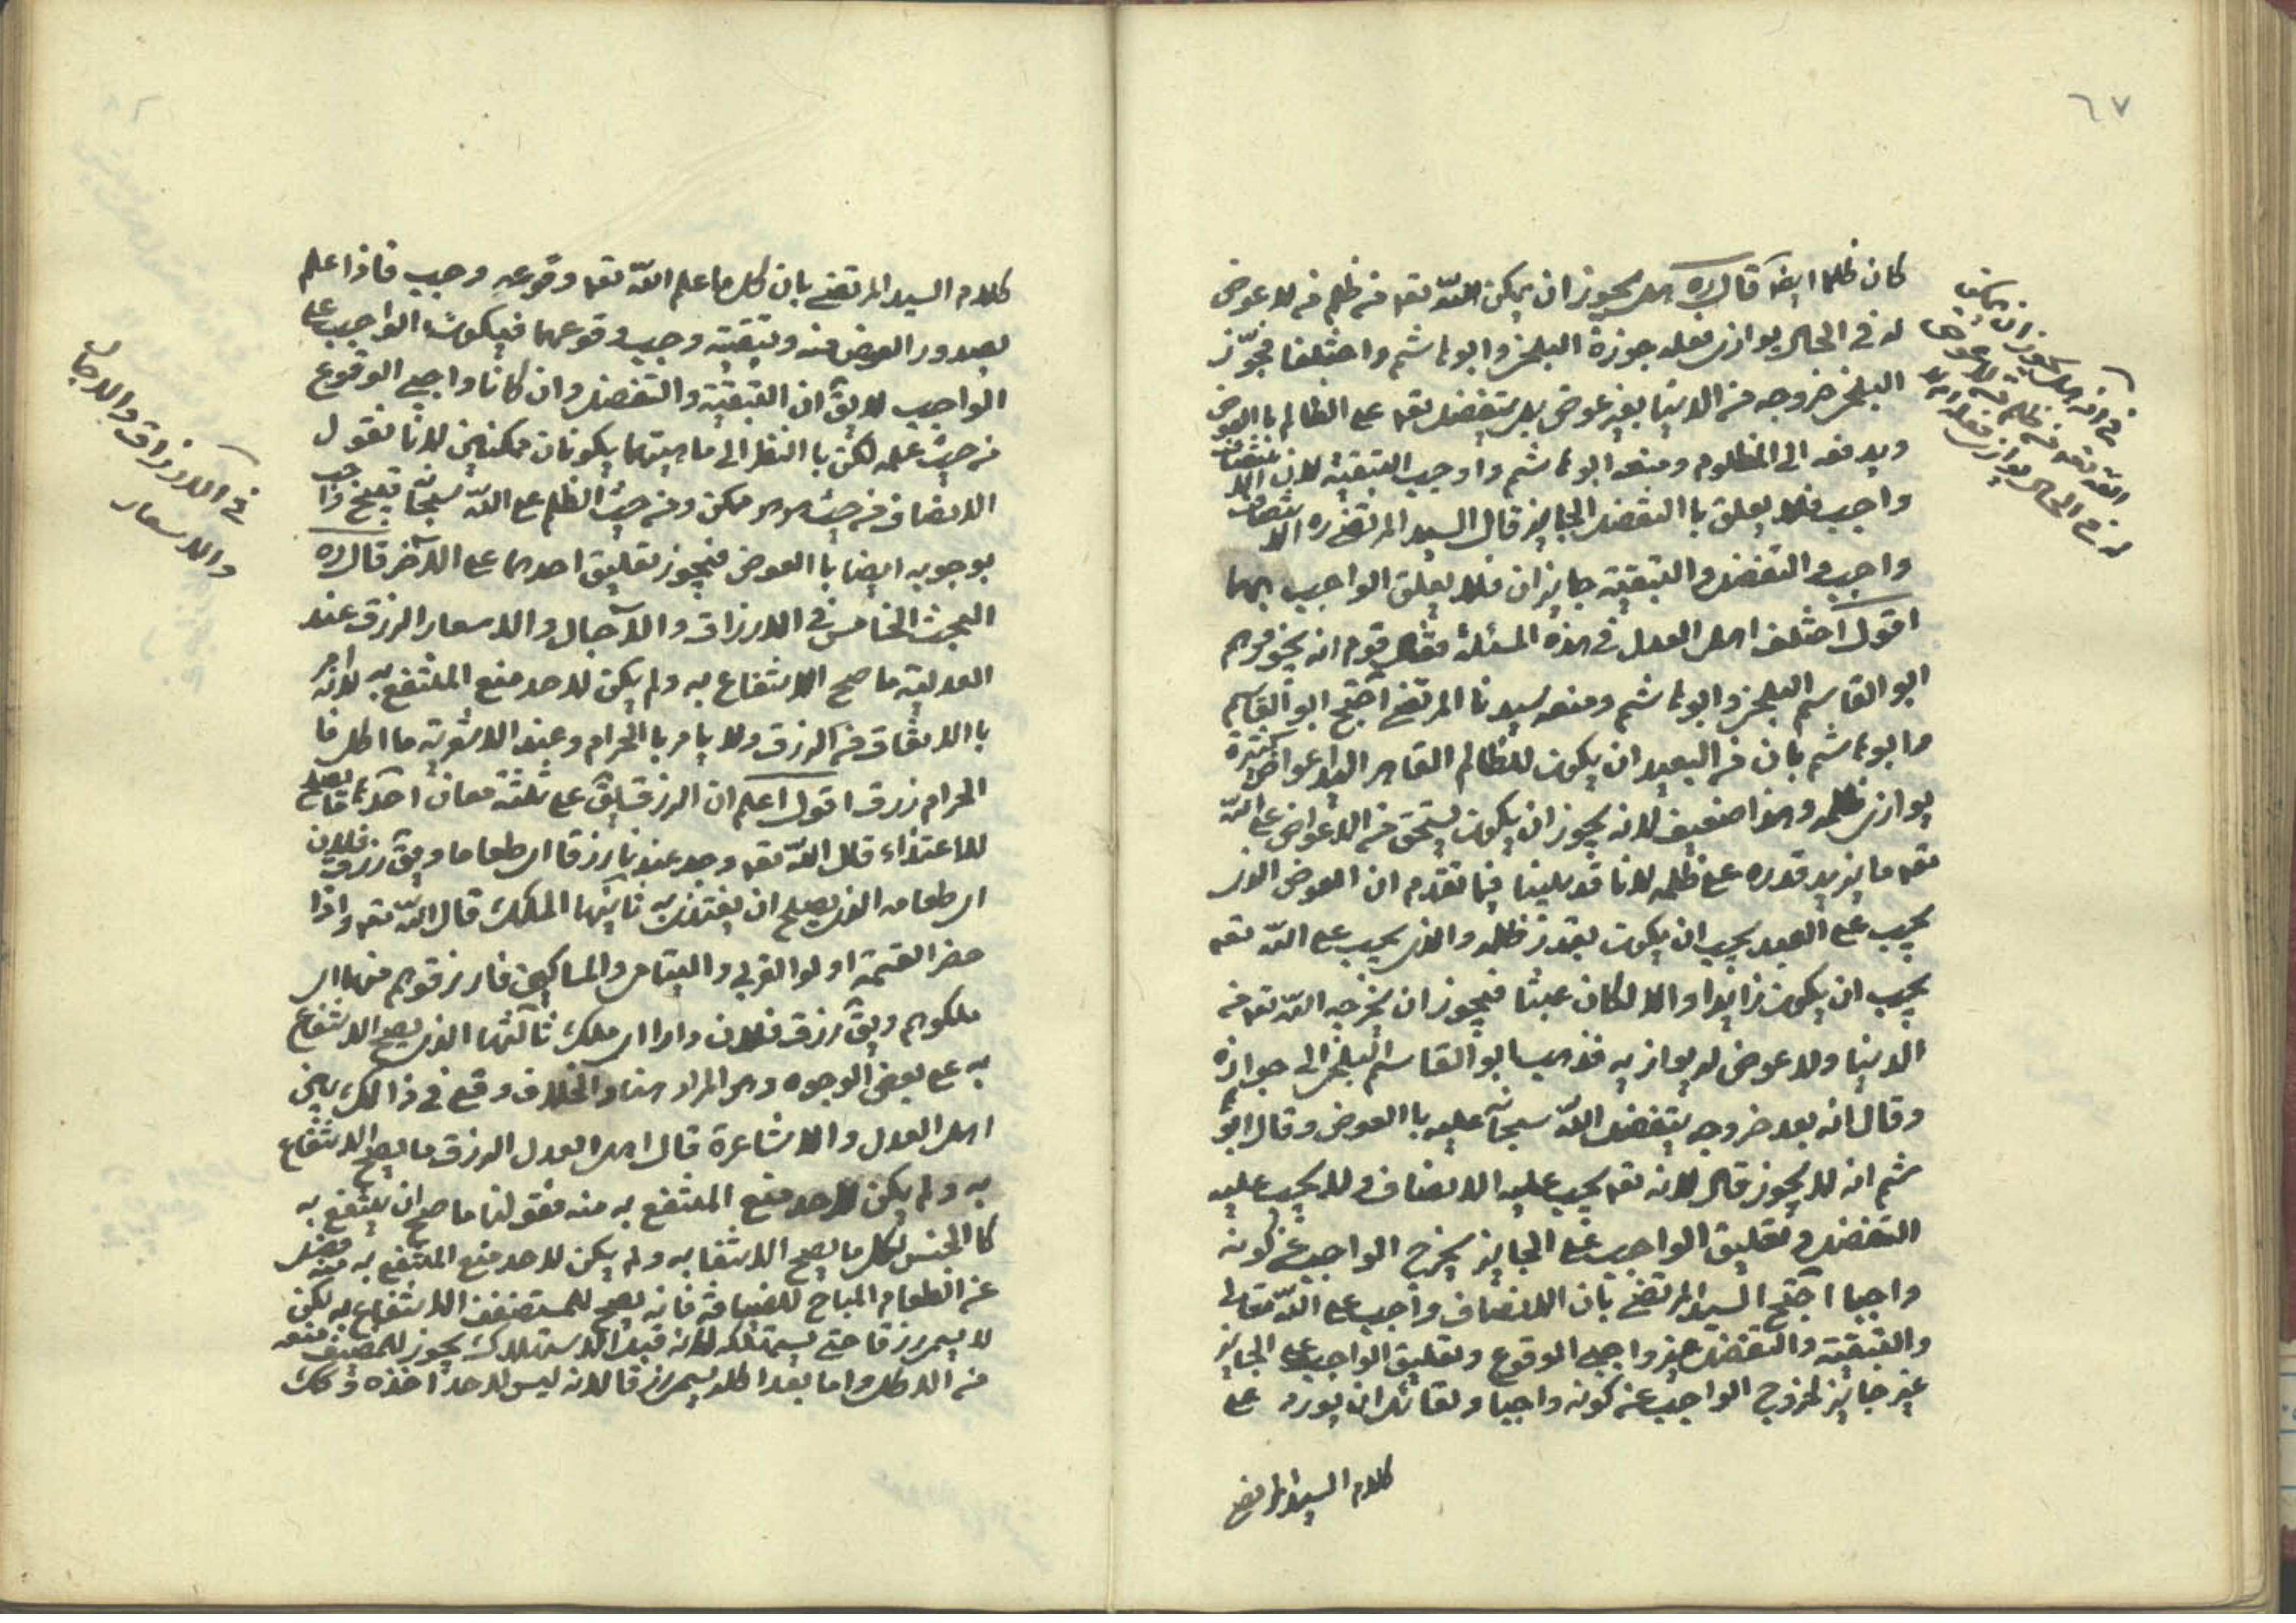 ٦٧
كان ظلما ايضا قال ره هل يجوز ان يمكن الله تعه من ظلم من لا عوض
له في الحال يوازى فعله جوزه البلخى وابو هاشم واختلفا فجوّز
البلخى خروجه من الدنيا بغير عوض بل يتفضل تعه على الظالم باالعوض
ويدفعه الى المظلوم ومنعه ابو هاشم واوجب التبقية لان الانتصاف
واجب فلا يعلق باالتفضل الجايز قال السيد المرتضى ره الانتصاف
واجب والتفضل والتبقية جايزان فلا يعلق الواجب بهما
اقول اختلف اهل العدل في هذه المسئلة فقال قوم انه يجوز وهم
ابو القاسم البلخى وابو هاشم ومنعه سيدنا المرتضى احتج ابو القاسم
وابو هاشم بان من البعيد ان يكون للظالم القاهر اعواض كثيرة
يوازى ظلمه وهذا ضعيف لانه يجوز ان يكون يستحق من الاعواض على الله
تعه ما يزيد قدره على ظلمه لانا قد بينا فيما تقدم ان العوض الذى
يجب على العبد يجب ان يكون بقدر ظلمه والذى يجب على الله تعه
يجب ان يكون زايدا والا لكان عبثا فيجوز ان يخرجه الله تعه من
الدنيا ولا عوض له يوازيه فذهب ابو القاسم البلخى الى جوازه
وقال انه بعد خروجه يتفضل الله سبحانه عليه باالعوض وقال ابو ها
شم انه لا يجوز قال لانه تعه يجب عليه الانصاف ولا يجب عليه
التفضل وتعليق الواجب على الجايز يخرج الواجب عن كونه
واجبا احتج السيد المرتضى بان الانصاف واجب على الله تعالى
والتبقية والتفضل غير واجبى الوقوع وتعليق الواجب على الجايز
غير جايز لخروج الواجب عن كونه واجبا ولقائل ان يورد على
كلام السيد المرتضى
في انه هل يجوز ان يمكن
الله تعه من ظلم من لا عوض
له في الحال يوازى فعله ام لا
كلام السيد المرتضى بان كل ما علم الله تعه وقوعه وجب فاذا علم
بصدور العوض منه وتبقيته وجب وقوعهما فيكون الواجب على
الواجب لا يق ان التبقية والتفضل وان كانا واجبى الوقوع
من حيث علمه لكن باالنظر الى ماهيتهما يكونان ممكنين لانا نقول
الانصاف من حيث هو هو ممكن ومن حيث الظلم على الله سبحانه قبيح واجب
بوجوبه ايضا باالعوض فيجوز تعليق احدهما على الاخر قال ره
البحث الخامس في الارزاق والآجال والاسعار الرزق عند
العدلية ما صح الانتفاع به ولم يكن لاحد منع المنتفع به لانه امر
باالانفاق من الرزق ولا يامر باالحرام وعند الاشعرية ما اكل فا
الحرام رزق اقول اعلم ان الرزق يق على ثلثة معان احدها ما يصلح
للاغتذاء قال الله تعه وجد عندها رزقا اى طعاما ويق رزق فلان
اى طعامه الذى يصلح ان يغتذى به ثانيها الملك قال الله تعه واذا
حضر القسمة اولوا القربى واليتامى والمساكين فارزقوهم منها اى
ملكوهم ويق رزق فلان دارا اى ملك ثالثها الذى يصح الانتفاع
به على بعض الوجوه وهو المراد هنا والخلاف وقع في ذالك بين
اهل العدل والاشاعرة قال اهل العدل الرزق ما يصح الانتفاع
به ولم يكن لاحد منع المنتفع به منه فقولنا ما صح ان ينتفع به
كاالجنس لكل ما يصح الانتفا به ولم يكن لاحد منع المنتفع به منه فصل
عن الطعام المباح للضيافة فانه يصح للمستضيف الانتفاع به لكن
لا يسمى رزقا حتى يستهلكه لانه قبل الاستهلاك يجوز للمضيف منعه
من الاكل واما بعد اكله يسمى رزقا لانه ليس لاحد اخذه وكك
في الارزاق والاجال
والاسعار